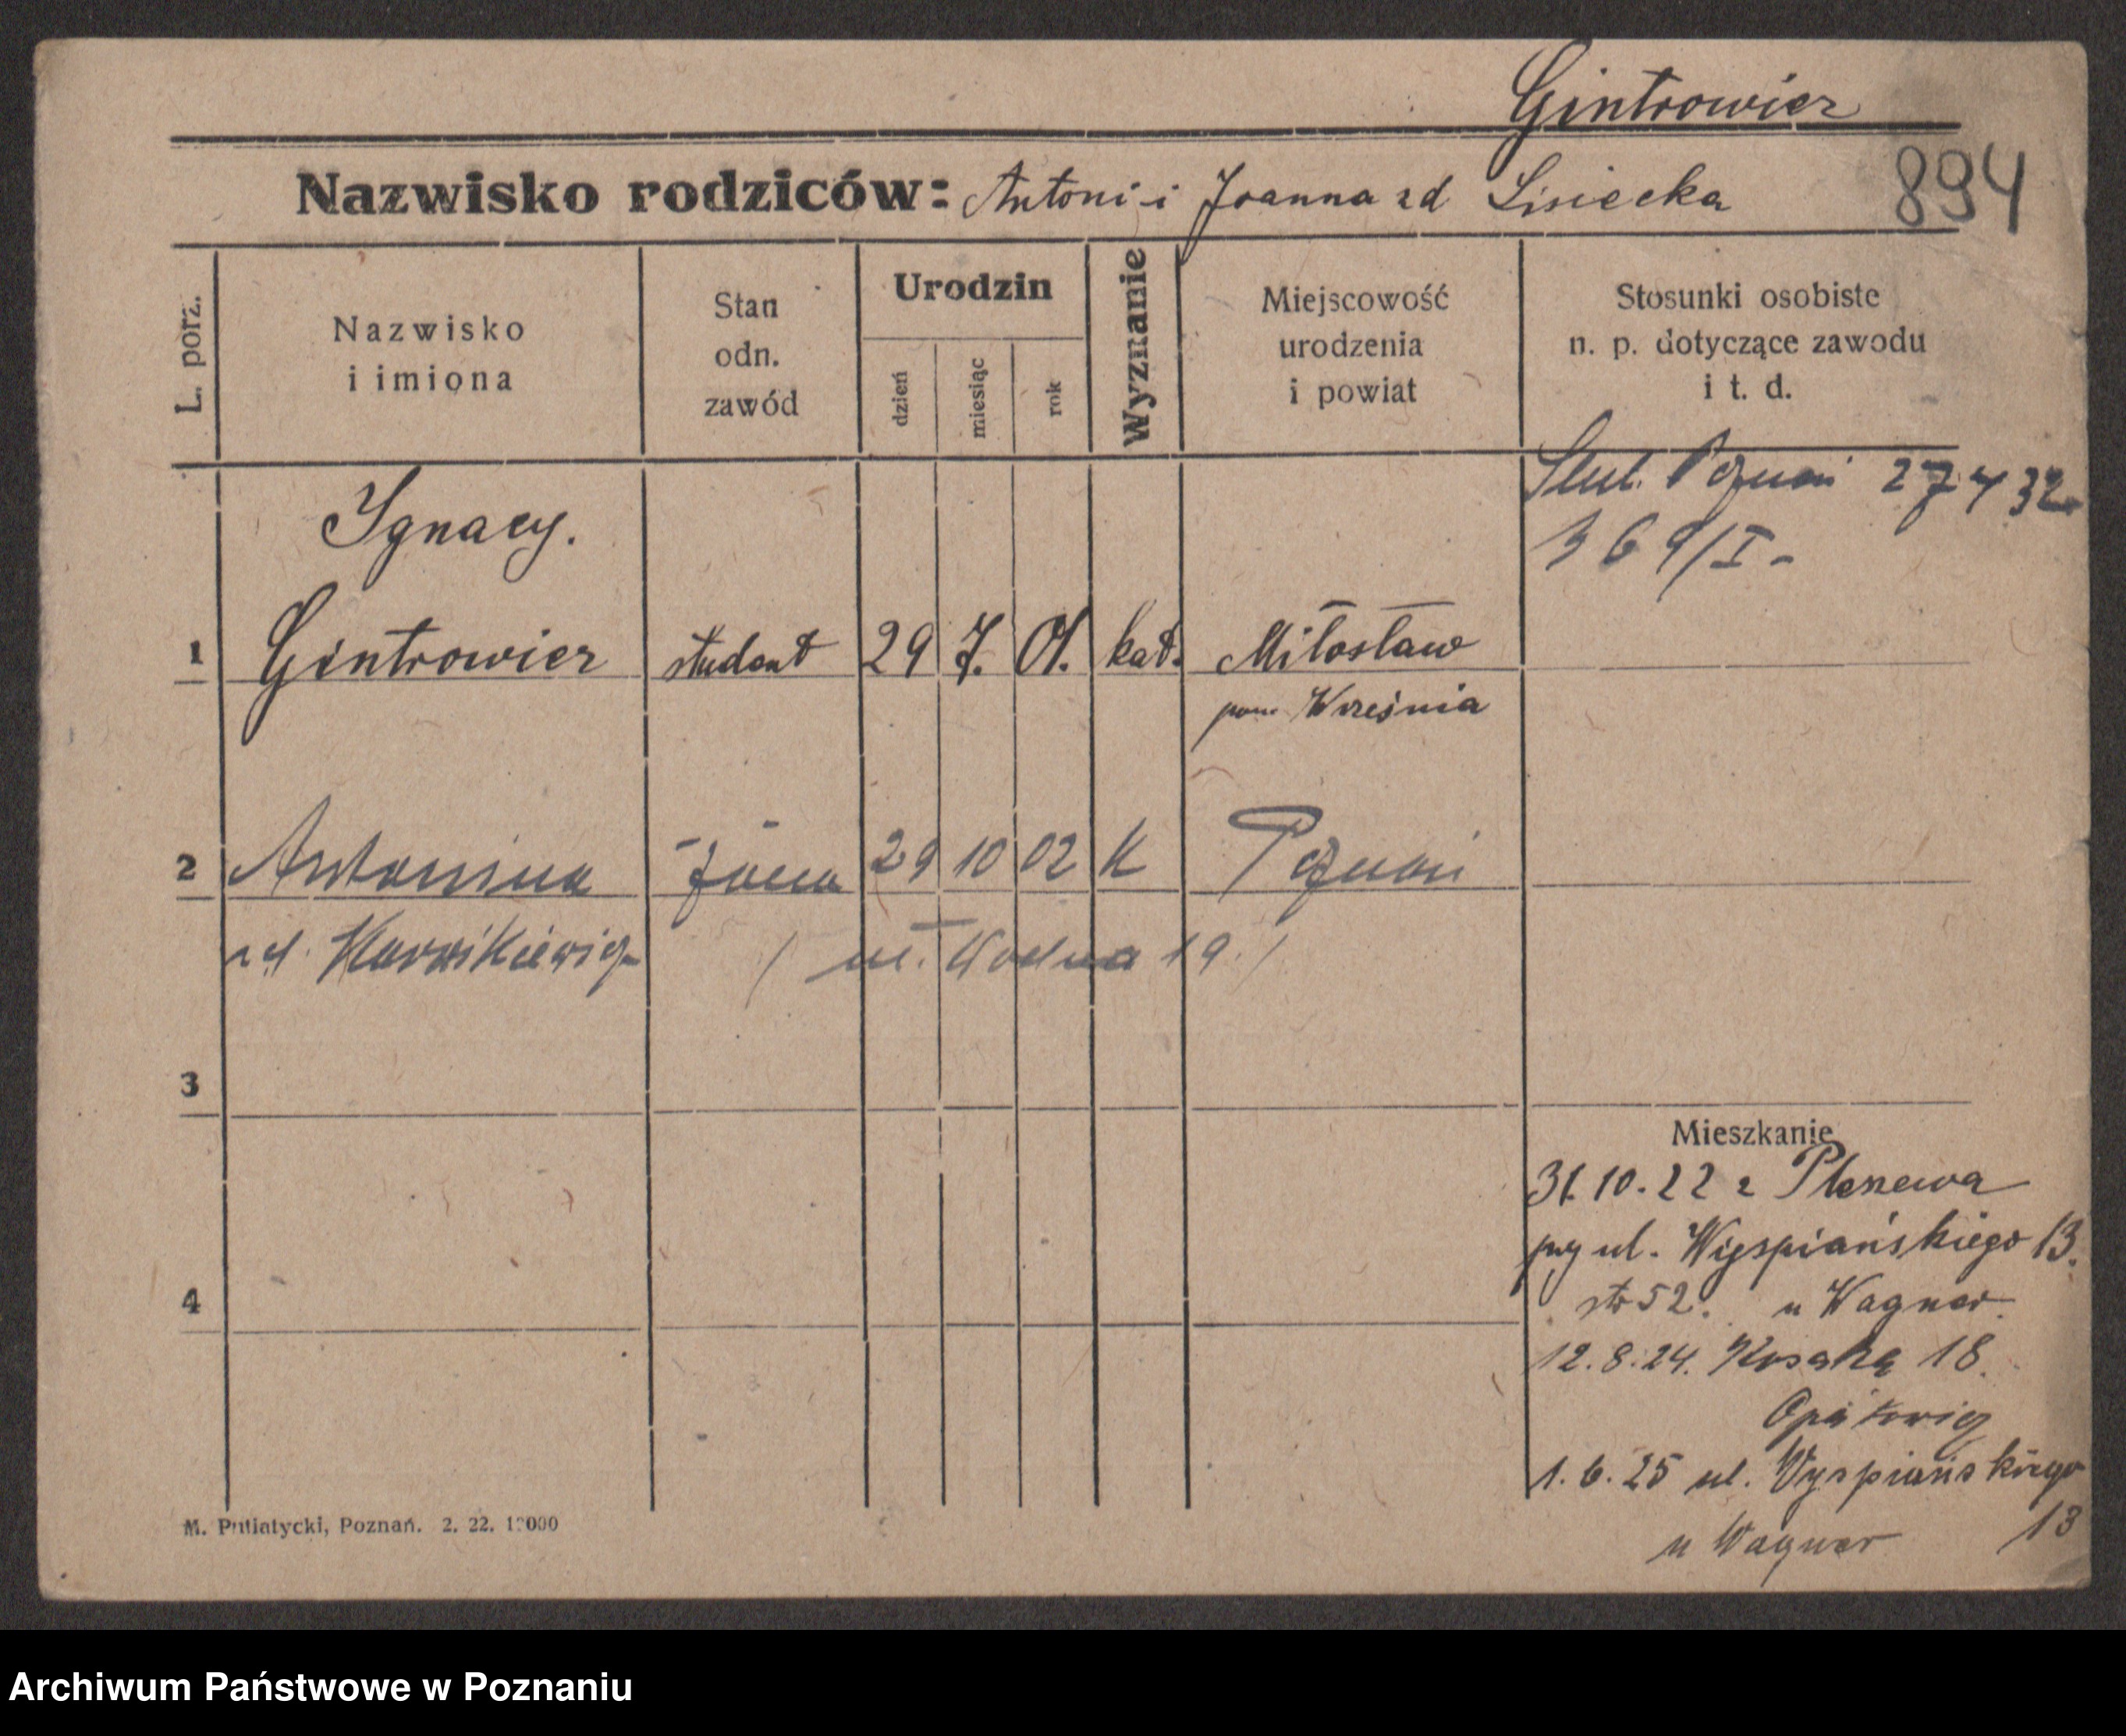 Gintrowicz
Nazwisko rodziców: Antoni i Joanna zd Lisiecka
894
L. porz.
Nazwisko
i imiona
Stan
odn.
zawód
Urodzin
dzień
miesiąc
rok
Wyznanie
Miejscowość
urodzenia
i powiat
Stosunki osobiste
n. p. dotyczące zawodu
i t. d.
Ślub. Poznań 27 4 32
369/I-
Ignacy.
1 Gintrowicz student 29 7. 01. kat. Miłosław
pow Września
2 Antonina żona 29 10 02 K Poznań
zd.
/ ul. Wodna 19. /
3
Mieszkanie
31.10.22 z Pleszewa
przy ul. Wyspiańskiego 13.
4
str 52. u Wagner.
12.8.24. Kosaka 18.
1.6.25 ul. Wyspiańskiego
13
u Wagner
M. Putiatycki, Poznań. 2. 22. 12000
Archiwum Państwowe w Poznaniu